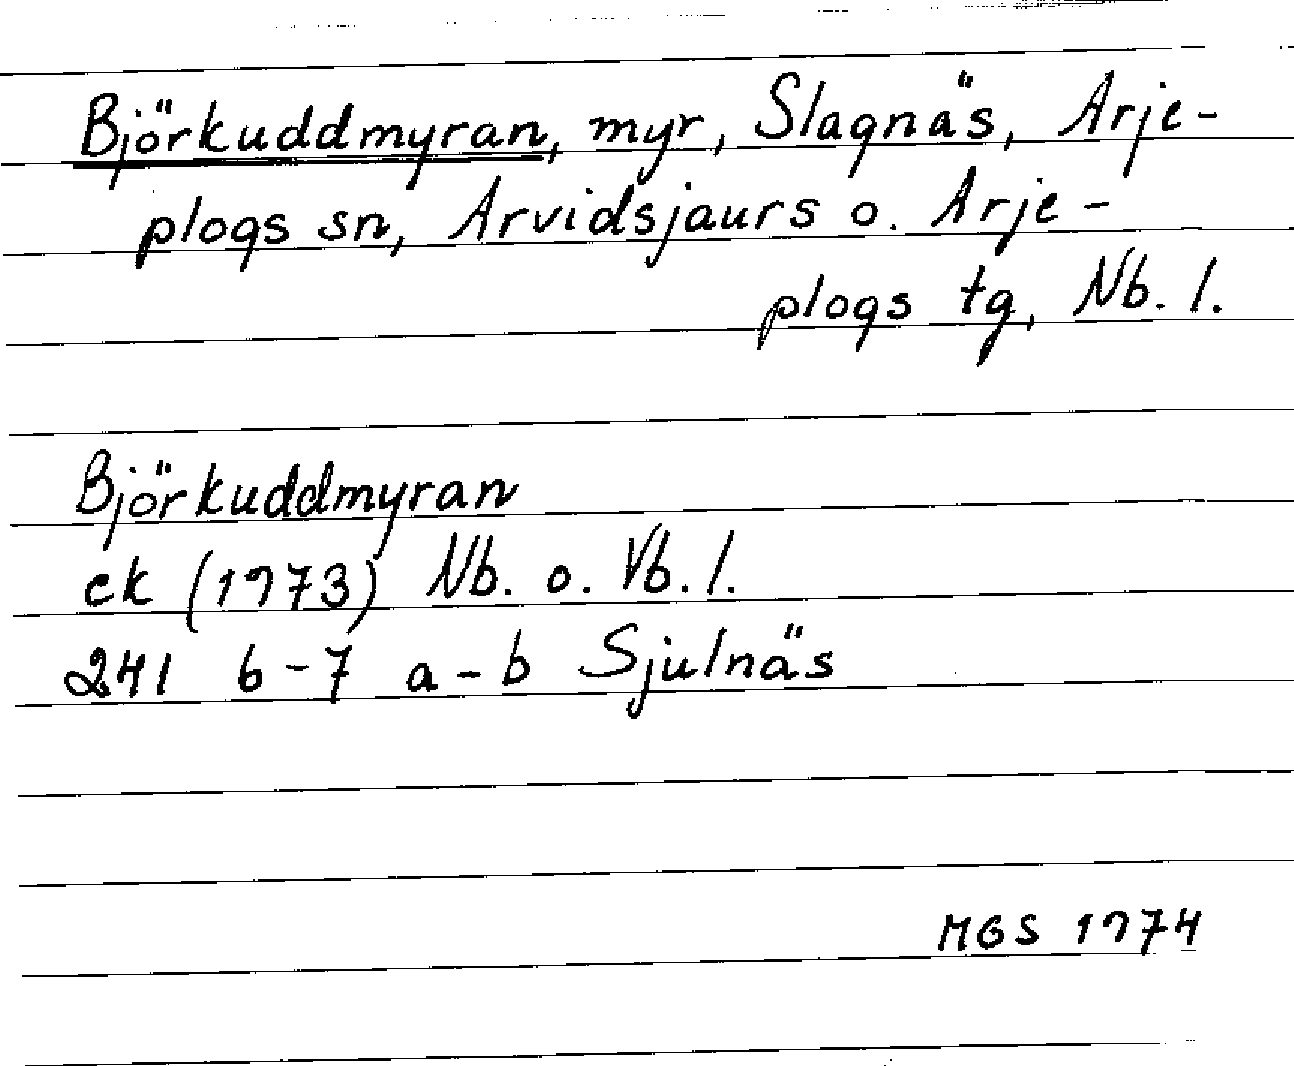 Björkuddmyran, myr, Slagnäs, Arje-
plogs sn, Arvidsjaurs o. Arje-
plogs tg, Nb. l.
Björkuddmyran
ek (1973) Nb. o. Vb. l.
241 6-7 a-b Sjulnäs
MGS 1974